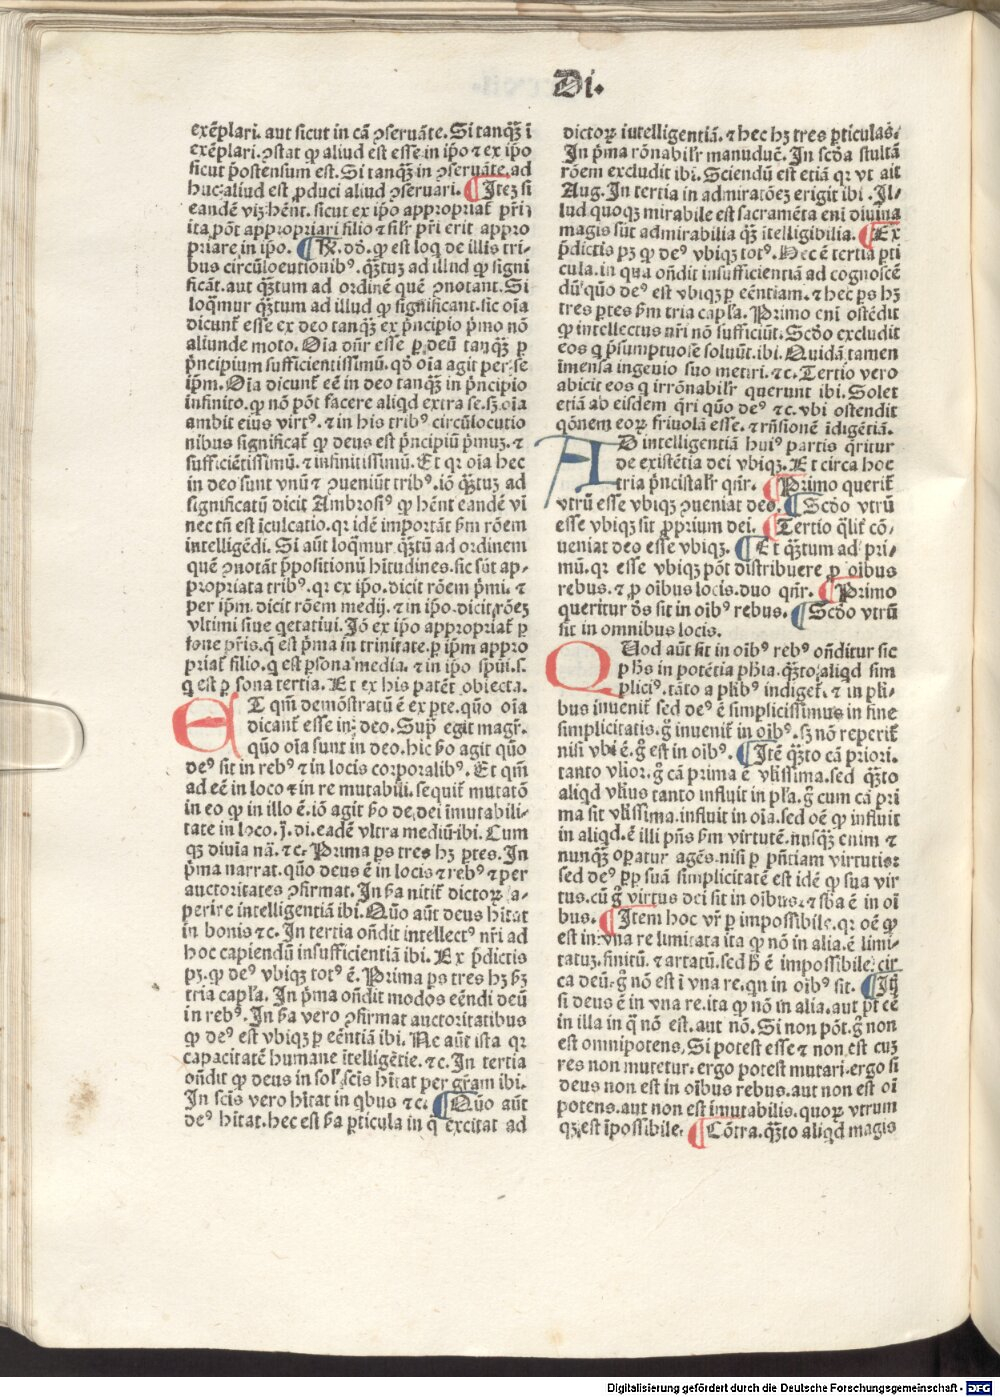 Di.
exẽplari. aut sicut in cã ꝯseruãte. Si tanqȝ̃ ĩ
exẽplari. ꝯstat ꝙ aliud est esse in ip̃o ⁊ ex ip̃o
sicut p̃ostensum est. Si tanqȝ̃ in ꝯseruãte. ad
huc aliud est ꝓduci aliud ꝯseruari. ¶ Iteȝ si
eandẽ viȝ hñt. sicut ex ip̃o appropriat̃ pr̃i
ita põt appropriari filio ⁊ sił̃r pr̃i erit appro
priare in ip̃o. ¶ R̃. dõ. ꝙ est loq̃ de illis tri-
bus circũlocutionibꝰ. qȝ̃tuȝ ad illud ꝙ signi
ficãt. aut qȝ̃tum ad ordinẽ quẽ ꝯnotant. Si
loq̃mur qȝ̃tum ad illud ꝙ significant. sic oĩa
dicunt̃ esse ex deo tanqȝ̃ ex p̃ncipio p̃mo nõ
aliunde moto. Oĩa dñr esse ꝑ deũ tanqȝ̃ ꝑ
p̃ncipium sufficientissimũ. qõ oĩa agit per se
ip̃m. Oĩa dicunt̃ eẽ in deo tanqȝ̃ in p̃ncipio
infinito. ꝙ nõ põt facere aliqd extra se. sȝ oĩa
ambit eius virtꝰ. ⁊ in his tribꝰ circũlocutio
nibus significat̃ ꝙ deus est p̃ncipiũ p̃muȝ. ⁊
sufficiẽtissimũ. ⁊ infinitissimũ. Et qr oĩa hec
in deo sunt vnũ ⁊ ꝯueniũt tribꝰ. iõ qȝ̃tuȝ ad
significatũ dicit Ambrosiꝰ ꝙ hẽnt eandẽ vĩ
nec tñ est ĩculcatio. qr idẽ importãt ẜm rõem
intelligẽdi. Si aũt loq̃mur qȝ̃tũ ad ordinem
quẽ ꝯnotãt p̃positionũ hĩtudines. sic sũt ap-
propriata tribꝰ. qr ex ip̃o. dicit rõem p̃mi. ⁊
per ip̃m. dicit rõem medij. ⁊ in ip̃o. dicit rõeȝ
vltimi siue q̃etatiui. Iõ ex ip̃o appropriat̃ ꝑ
sone pr̃is. q̃ est p̃ma in trinitate. ꝑ ip̃m appro
priat̃ filio. q̃ est ꝑsona media. ⁊ in ip̃o spũi. s.
q̃ est ꝑsona tertia. Et ex his patẽt obiecta.
ET qm̃ demõstratũ ẽ ex ꝑte. quõ oĩa
dicant̃ esse in deo. Supr̃ egit magr̃.
quõ oĩa sunt in deo. hic ꝟo agit quõ
deꝰ sit in rebꝰ ⁊ in locis corporalibꝰ. Et qm̃
ad eẽ in loco ⁊ in re mutabili. sequit̃ mutatõ
in eo ꝙ in illo ẽ. iõ agit ꝟo de dei ĩmutabili-
tate in loco. j. di. eadẽ vltra mediũ ibi. Cum
qȝ diuia nã. ⁊c. Prima ps tres hȝ ꝑtes. In
p̃ma narrat. quõ deus ẽ in locis ⁊ rebꝰ ⁊ per
auctoritates ꝯfirmat. In ẜa nitit̃ dictoꝝ a-
perire intelligentiã ibi. Quõ aũt deus hĩtat
in bonis ⁊c. In tertia oñdit intellectꝰ nr̃i ad
hoc capiendũ insufficientiã ibi. Ex p̃dictis
pȝ. ꝙ deꝰ vbiqȝ totꝰ ẽ. Prima ps tres hȝ ẜȝ
tria capła. In p̃ma oñdit modos eẽndi deũ
in rebꝰ. In ẜa vero ꝯfirmat auctoritatibus
ꝙ deꝰ est vbiqȝ ꝑ eẽntiã ibi. Ne aũt ista qr
capacitatẽ humane ĩtelligẽtie. ⁊c. In tertia
oñdit ꝙ deus in solꝰ scis hĩtat per gr̃am ibi.
In scis vero hĩtat in qbus ⁊c. ¶ Quõ aũt
deꝰ hĩtat. hec est ẜa ꝑticula in q̃ excitat ad
dictoꝝ iutelligentiã. ⁊ hec hȝ tres ꝑticulas.
In p̃ma rõnabilr̃ manuducẽ. In scđa stultã
rõem excludit ibi. Sciendũ est etiã qr vt ait
Aug. In tertia in admiratõeȝ erigit ibi. Il-
lud quoqȝ mirabile est sacramẽta eni diuina
magis sũt admirabilia qȝ̃ ĩtelligibilia. ¶ Ex
p̃dictis pȝ ꝙ deꝰ vbiqȝ totꝰ. Hec ẽ tertia ꝑti
cula. in qua oñdit insufficientiã ad cognoscẽ
dũ quõ deꝰ est vbiqȝ ꝑ eẽntiam. ⁊ hec ps hȝ
tres ꝑtes ẜm tria capła. Primo eni ostẽdit
ꝙ intellectus nr̃i nõ sufficiũt. Scđo excludit
eos q̃ p̃sumptuose soluũt. ibi. Quidã tamen
imensa ingenio suo metiri. ⁊c. Tertio vero
abicit eos q̃ irrõnabilr̃ querunt ibi. Solet
etiã ab eisdem q̃ri quõ deꝰ ⁊c. vbi ostendit
qõnem eoꝝ friuolã esse. ⁊ rñsionẽ ĩdigẽtiã.
AD intelligentiã huiꝰ partis q̃ritur
de existẽtia dei vbiqȝ. Et circa hoc
tria p̃ncipalr̃ qñr. ¶ Primo querit̃
vtrũ esse vbiqȝ ꝯueniat deo. ¶ Scđo vtrũ
esse vbiqȝ sit ꝓprium dei. ¶ Tertio q̃lit̃ cõ-
ueniat deo esse vbiqȝ. ¶ Et qȝ̃tum ad pri-
mũ. qr esse vbiqȝ põt distribuere ꝓ oĩbus
rebus. ⁊ ꝓ oĩbus locis. duo qñr. ¶ Primo
queritur ds̃ sit in oĩbꝰ rebus. ¶ Scđo vtrũ
sit in omnibus locis.
QUod aũt sit in oĩbꝰ rebꝰ oñditur sic
ph̃s in potẽtia ph̃ia. qȝ̃to aliqd sim
pliciꝰ. tãto a plĩbꝰ indiget̃. ⁊ in plĩ-
bus inuenit̃ sed deꝰ ẽ simplicissimus in fine
simplicitatis. g̊ inuenit̃ in oĩbꝰ. sȝ nõ reperit̃
nisi vbi ẽ. g̊ est in oĩbꝰ. ¶ Itẽ qȝ̃to cã priori.
tanto vlĩor. g̊ cã prima ẽ vlĩssima. sed qȝ̃to
aliqd vlĩus tanto influit in plĩa. g̊ cum cã pri
ma sit vlĩssima. influit in oĩa. sed oẽ ꝙ influit
in aliqd. ẽ illi pñs ẜm virtutẽ. nusqȝ̃ enim ⁊
nunqȝ̃ oꝑatur agẽs. nisi ꝑ pñtiam virtutis:
sed deꝰ ꝓp̃ suã simplicitatẽ est idẽ ꝙ sua vir
tus. cũ g̊ virtus dei sit in oĩbus. ⁊ sb̃a ẽ in oĩ
bus. ¶ Item hoc vr̃ ꝑ impossibile. qr oẽ ꝙ
est in vna re limitata ita ꝙ nõ in alia. ẽ limi-
tatuȝ. finitũ. ⁊ artatũ. sed h̃ ẽ impossibile. cir
ca deũ. g̊ nõ est ĩ vna re. qn in oĩbꝰ sit. ¶ Itẽ
si deus ẽ in vna re. ita ꝙ nõ in alia. aut põt eẽ
in illa in q̃ nõ est. aut nõ. Si non põt. g̊ non
est omnipotens. Si potest esse ⁊ non est cuȝ
res non mutetur. ergo potest mutari. ergo si
deus non est in oĩbus rebus. aut non est oĩ
potens. aut non est imutabilis. quoꝝ vtrum
qȝ est ĩpossibile. ¶ Cõtra. qȝ̃to aliqd magis
Digitalisierung gefördert durch die Deutsche Forschungsgemeinschaft - DFG